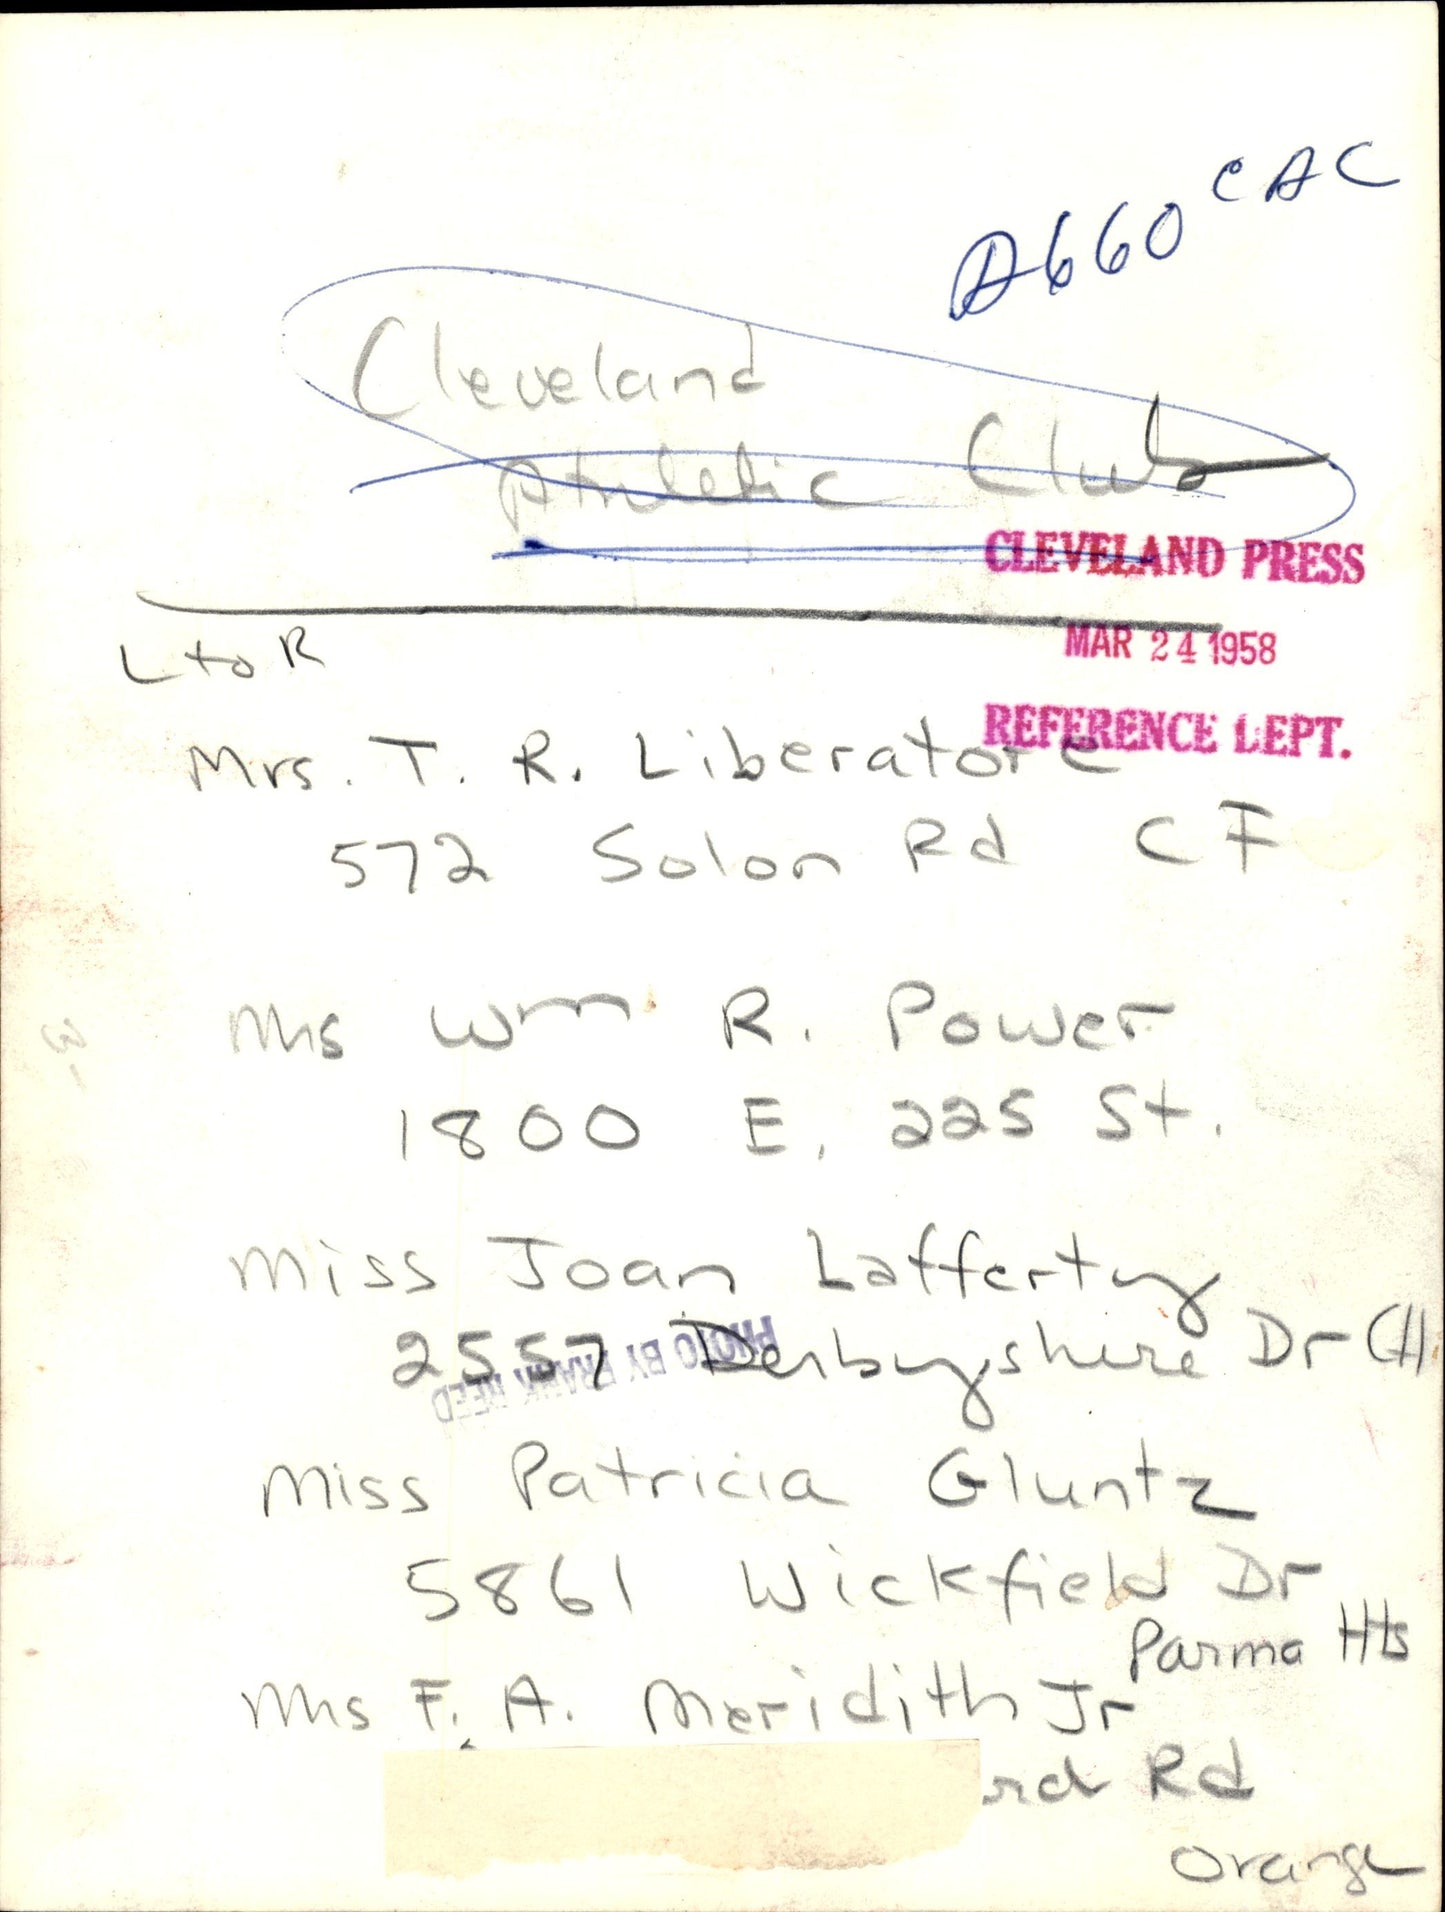 A660 CAC
Cleveland
Athletic Club
CLEVELAND PRESS
MAR 24 1958
REFERENCE DEPT.
L to R
Mrs. T. R. Liberatore
572 Solon Rd CF
Mrs Wm R. Power
1800 E. 225 St.
Miss Joan Lafferty
2557 Derbyshire Dr CH
PHOTO BY FRANK REED
Miss Patricia Gluntz
5861 Wickfield Dr
Parma Hts
Mrs F. A. Meridith Jr
rd Rd
Orange